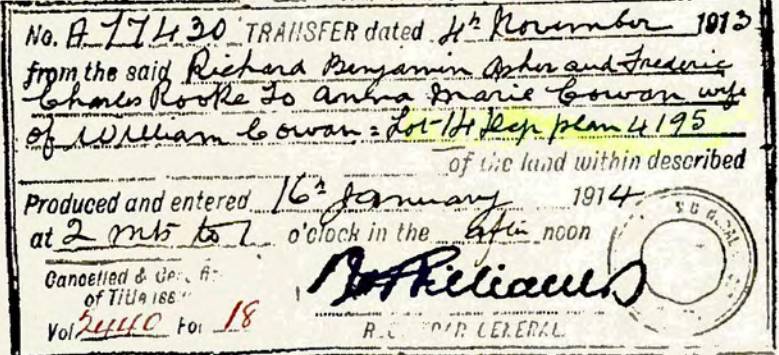 No. A 77430 TRANSFER dated 4th November 1913
from the said Richard Benjamin Asher and Frederic
Charles Rooke To Anna Marie Cowan wife
of William Cowan = Lot 14 Dep plan 4195
of the land within described
Produced and entered 16th January 1914
at 2 mts to 1 o'clock in the after noon
Cancelled &
of Title
Vol 2440 Fol 18
Williams
GENERAL